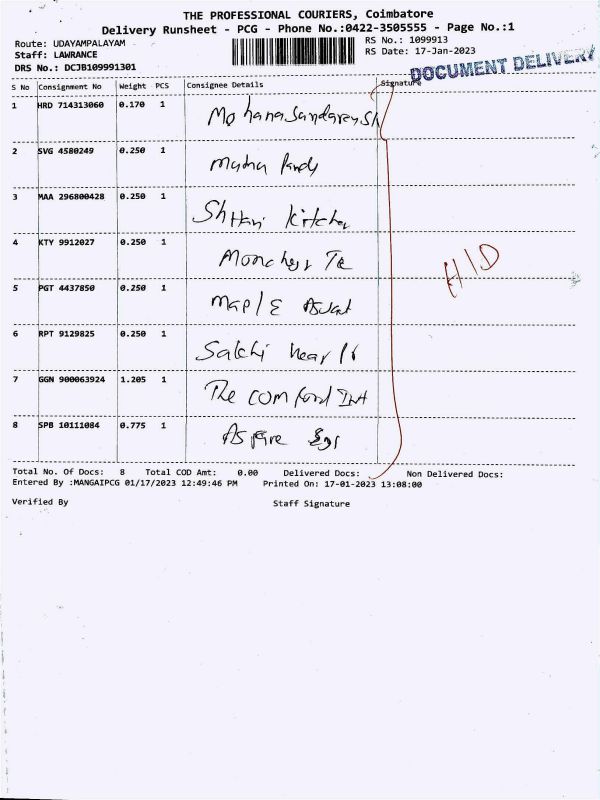 THE PROFESSIONAL COURIERS, Coimbatore
Delivery Runsheet - PCG - Phone No.:0422-3505555 - Page No.:1
Route: UDAYAMPALAYAM
Staff: LAWRANCE
DRS No.: DCJB109991301
RS No.: 1099913
RS Date: 17-Jan-2023
DOCUMENT DELIVERY
S No Consignment No Weight PCS Consignee Details Signature
1 HRD 714313060 0.170 1
2 SVG 4580249 0.250 1
3 MAA 296800428 0.250 1
4 KTY 9912027 0.250 1
5 PGT 4437850 0.250 1 Maple
6 RPT 9129825 0.250 1 Sakthi
7 GGN 900063924 1.205 1 The
8 SPB 10111084 0.775 1 Aspire
H/D
Total No. Of Docs: 8 Total COD Amt: 0.00 Delivered Docs: Non Delivered Docs:
Entered By :MANGAIPCG 01/17/2023 12:49:46 PM Printed On: 17-01-2023 13:08:00
Verified By Staff Signature